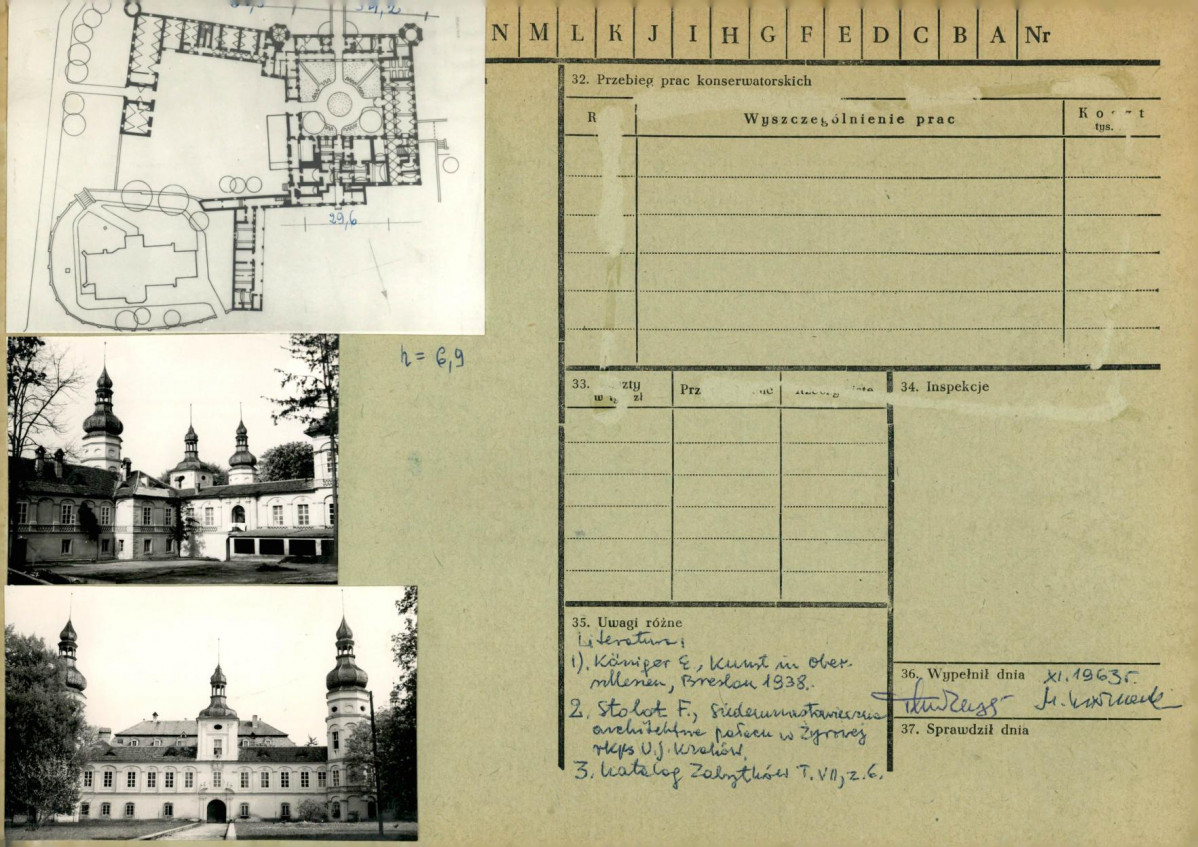 29,6
h = 6,9
N M L K J I H G F E D C B A Nr
32. Przebieg prac konserwatorskich
Wyszczególnienie prac
tys.
33.
34. Inspekcje
35. Uwagi różne
Literatura:
1). Königer E, Kunst in Ober-
schlesien, Breslau 1938.
2. Stolot F., Siedemnastowieczna
architektura pałacu w Żyrowej
rkps U.J. Kraków.
3. Katalog Zabytków T. VII, z. 6.
36. Wypełnił dnia XI. 1963 r.
37. Sprawdził dnia